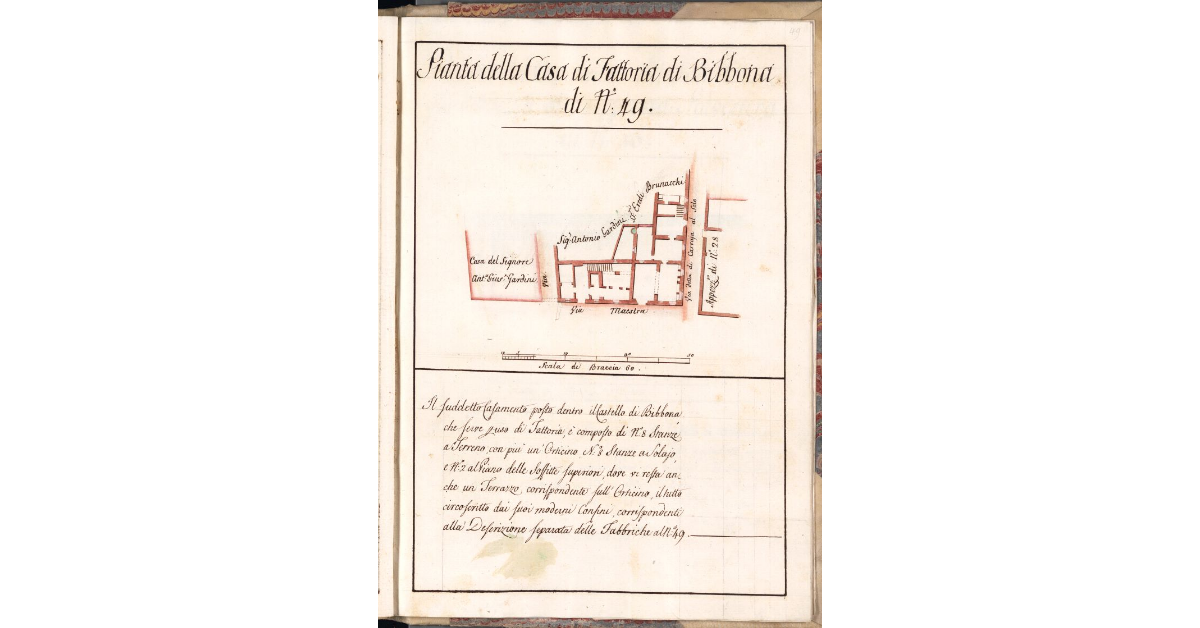 Pianta della Casa di Fattoria di Bibbona
di N.º 49.
Sig.r Antonio Gardini
S.i Eredi Brunacchi
Casa del Signore
Ant.o Gius.e Gardini
Via
Via Maestra
Via detta di Carraja al Sole
Appezz.o di N.º 28
Scala di Braccia 60.
Il suddetto Casamento posto dentro il Castello di Bibbona
che serve p uso di Fattoria, è composto di N.º 8 Stanze
a Terreno, con piu un' Orticino N.º 8 Stanze a Solajo,
e N.º 2 al Piano delle Soffitte superiori, dove vi resta an=
che un Terrazzo, corrispondente sull' Orticino, il tutto
circoscritto dai suoi moderni Confini, corrispondenti
alla Descrizione separata delle Fabbriche al N.º 49.